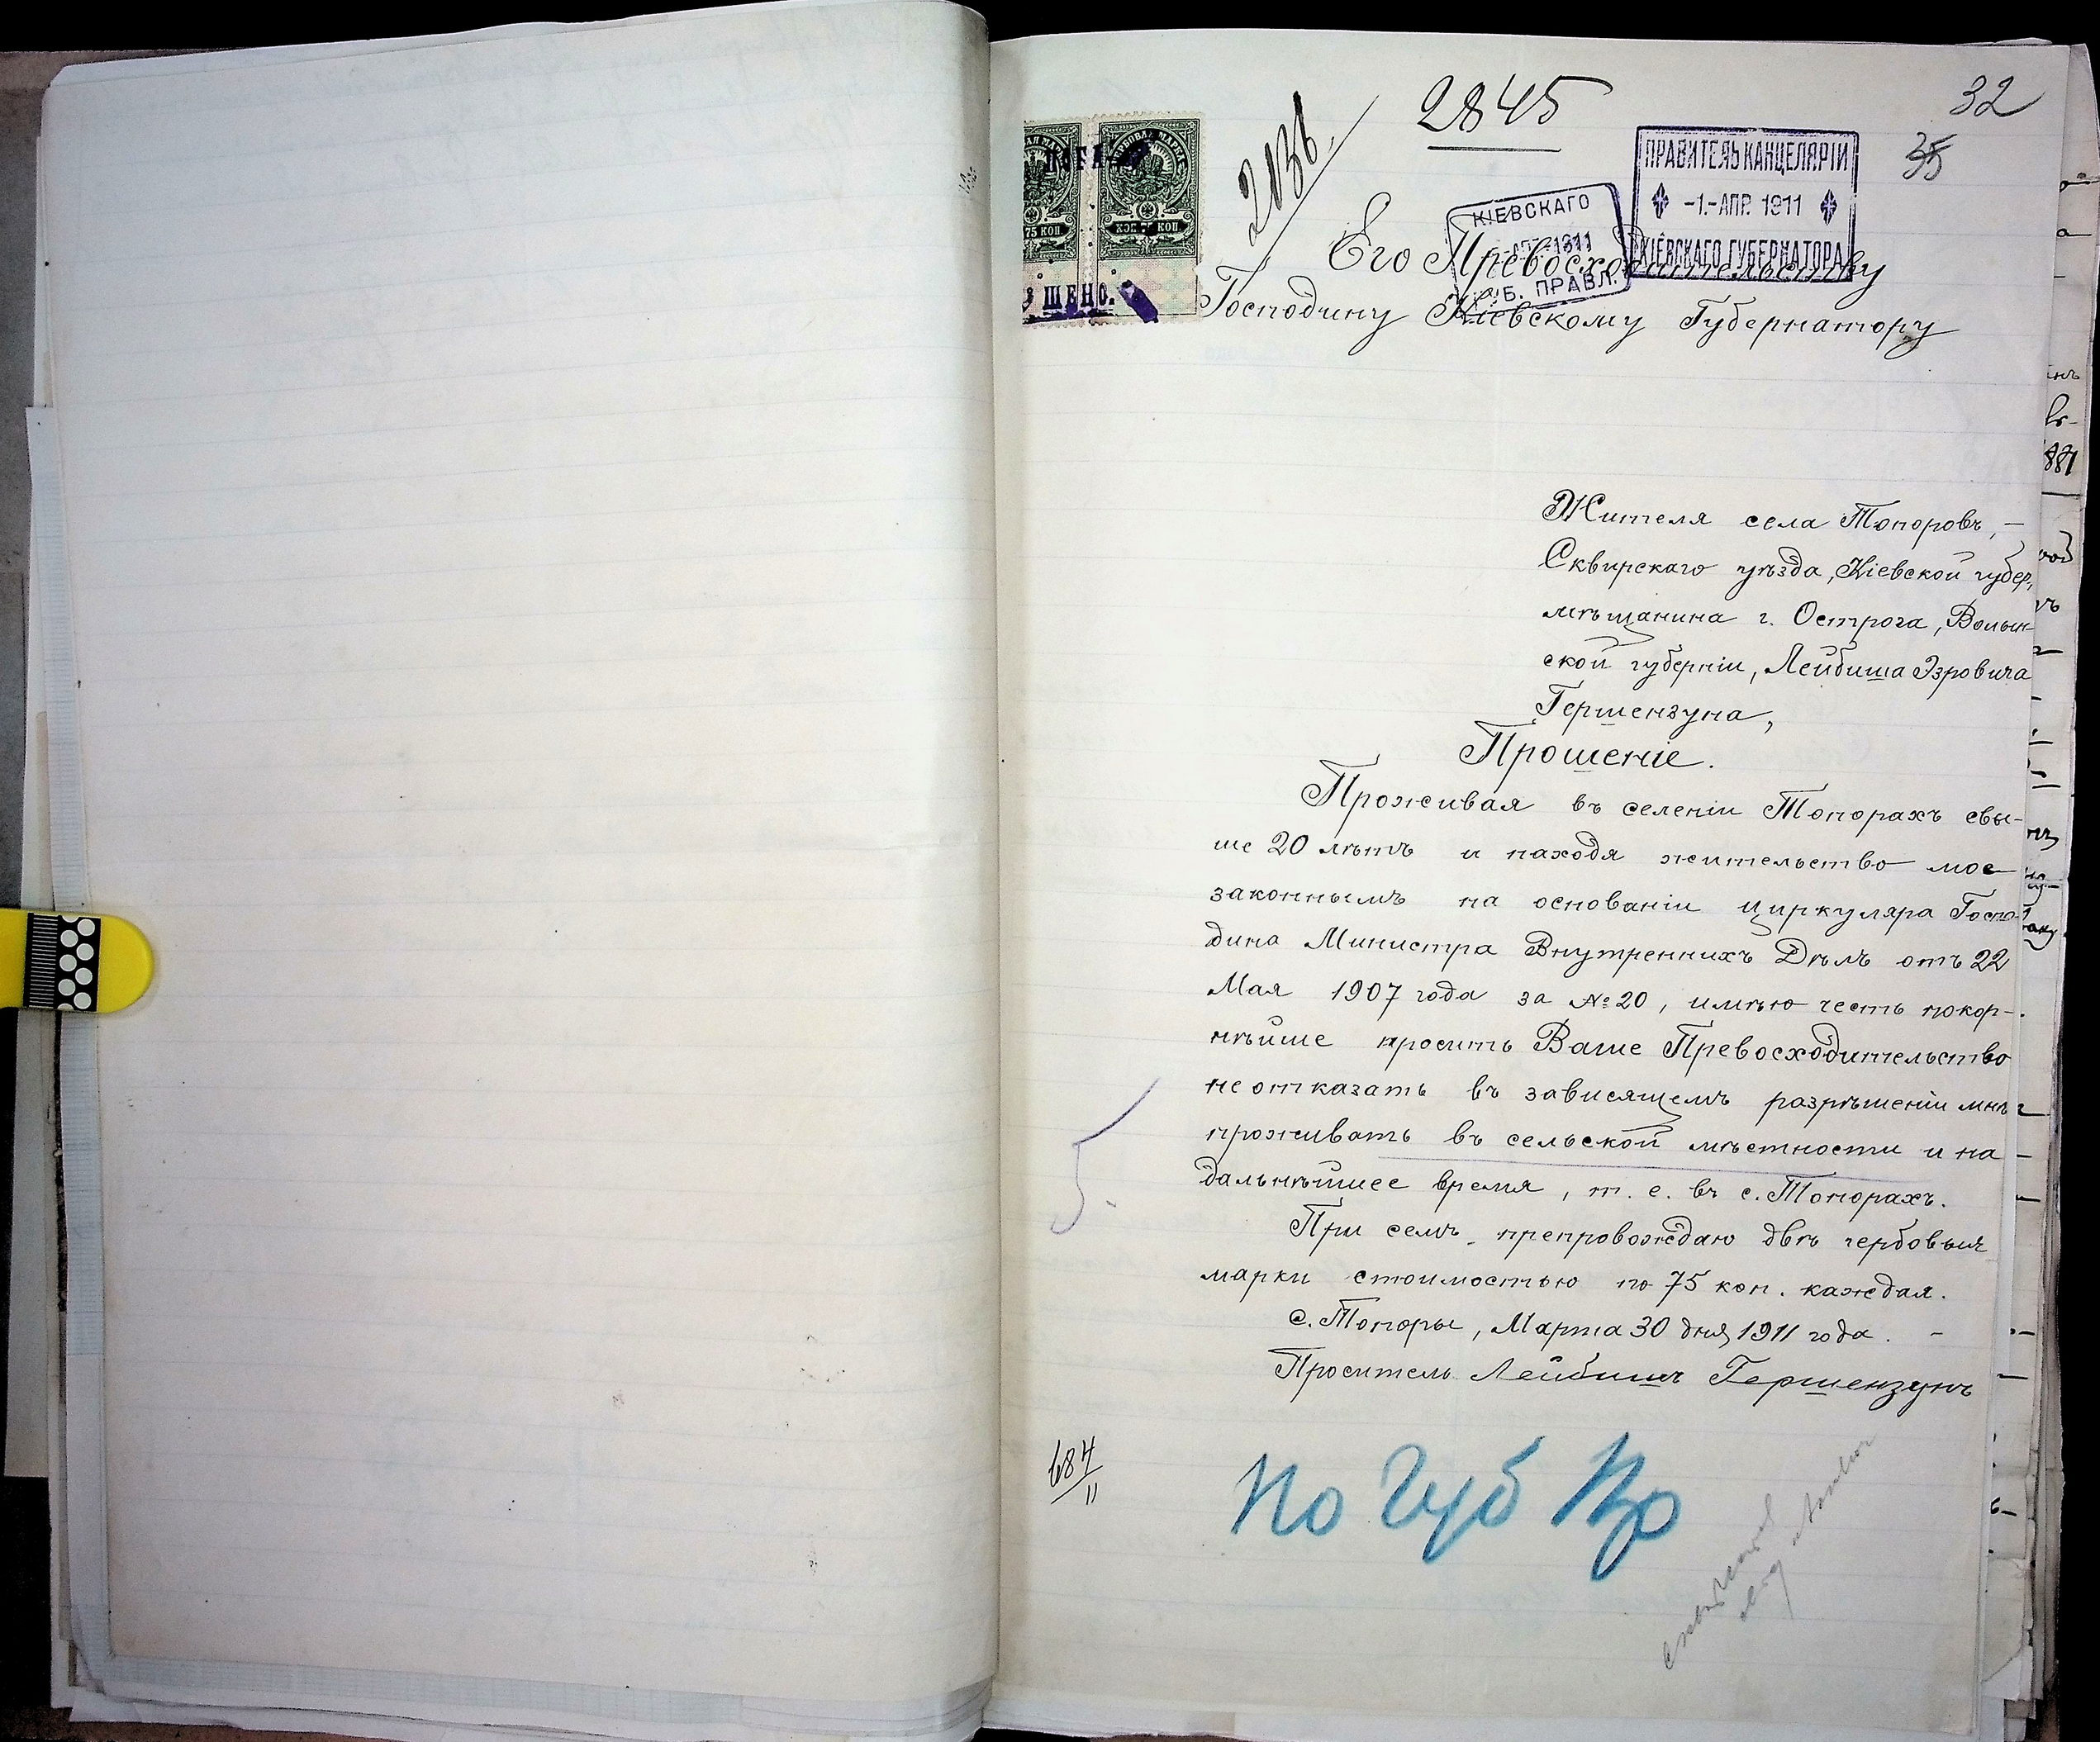 2845
32
35
2136.
ПРАВИТЕЛЬ КАНЦЕЛЯРІИ
-1.-АПР. 1911
КІЕВСКАГО ГУБЕРНАТОРА
КІЕВСКАГО
1911
ГУБ. ПРАВЛ.
75 КОП
ШЕНО.
Его Превосходительству
Господину Кіевскому Губернатору
Жителя села Топоровъ, –
Сквирскаго уѣзда, Кіевской губер,
мѣщанина г. Острога, Волын-
ской губерніи, Лейбиша Эзровича
Гершензуна,
Прошеніе.
Проживая въ селеніи Топорахъ свы-
ше 20 лѣтъ и находя жительство мое
законнымъ на основаніи циркуляра Госпо-
дина Министра Внутреннихъ Дѣлъ отъ 22
Мая 1907 года за № 20, имѣю честь покор-
нѣйше просить Ваше Превосходительство
не отказать въ зависящемъ разрѣшеніи мнѣ
проживать въ сельской мѣстности и на
дальнѣйшее время, т. е. въ с. Топорахъ.
При семъ препровождаю двѣ гербовыя
марки стоимостью по 75 коп. каждая.
с. Топоры, Марта 30 дня 1911 года. –
Проситель Лейбишъ Гершензунъ
684/11
По Губ Пр